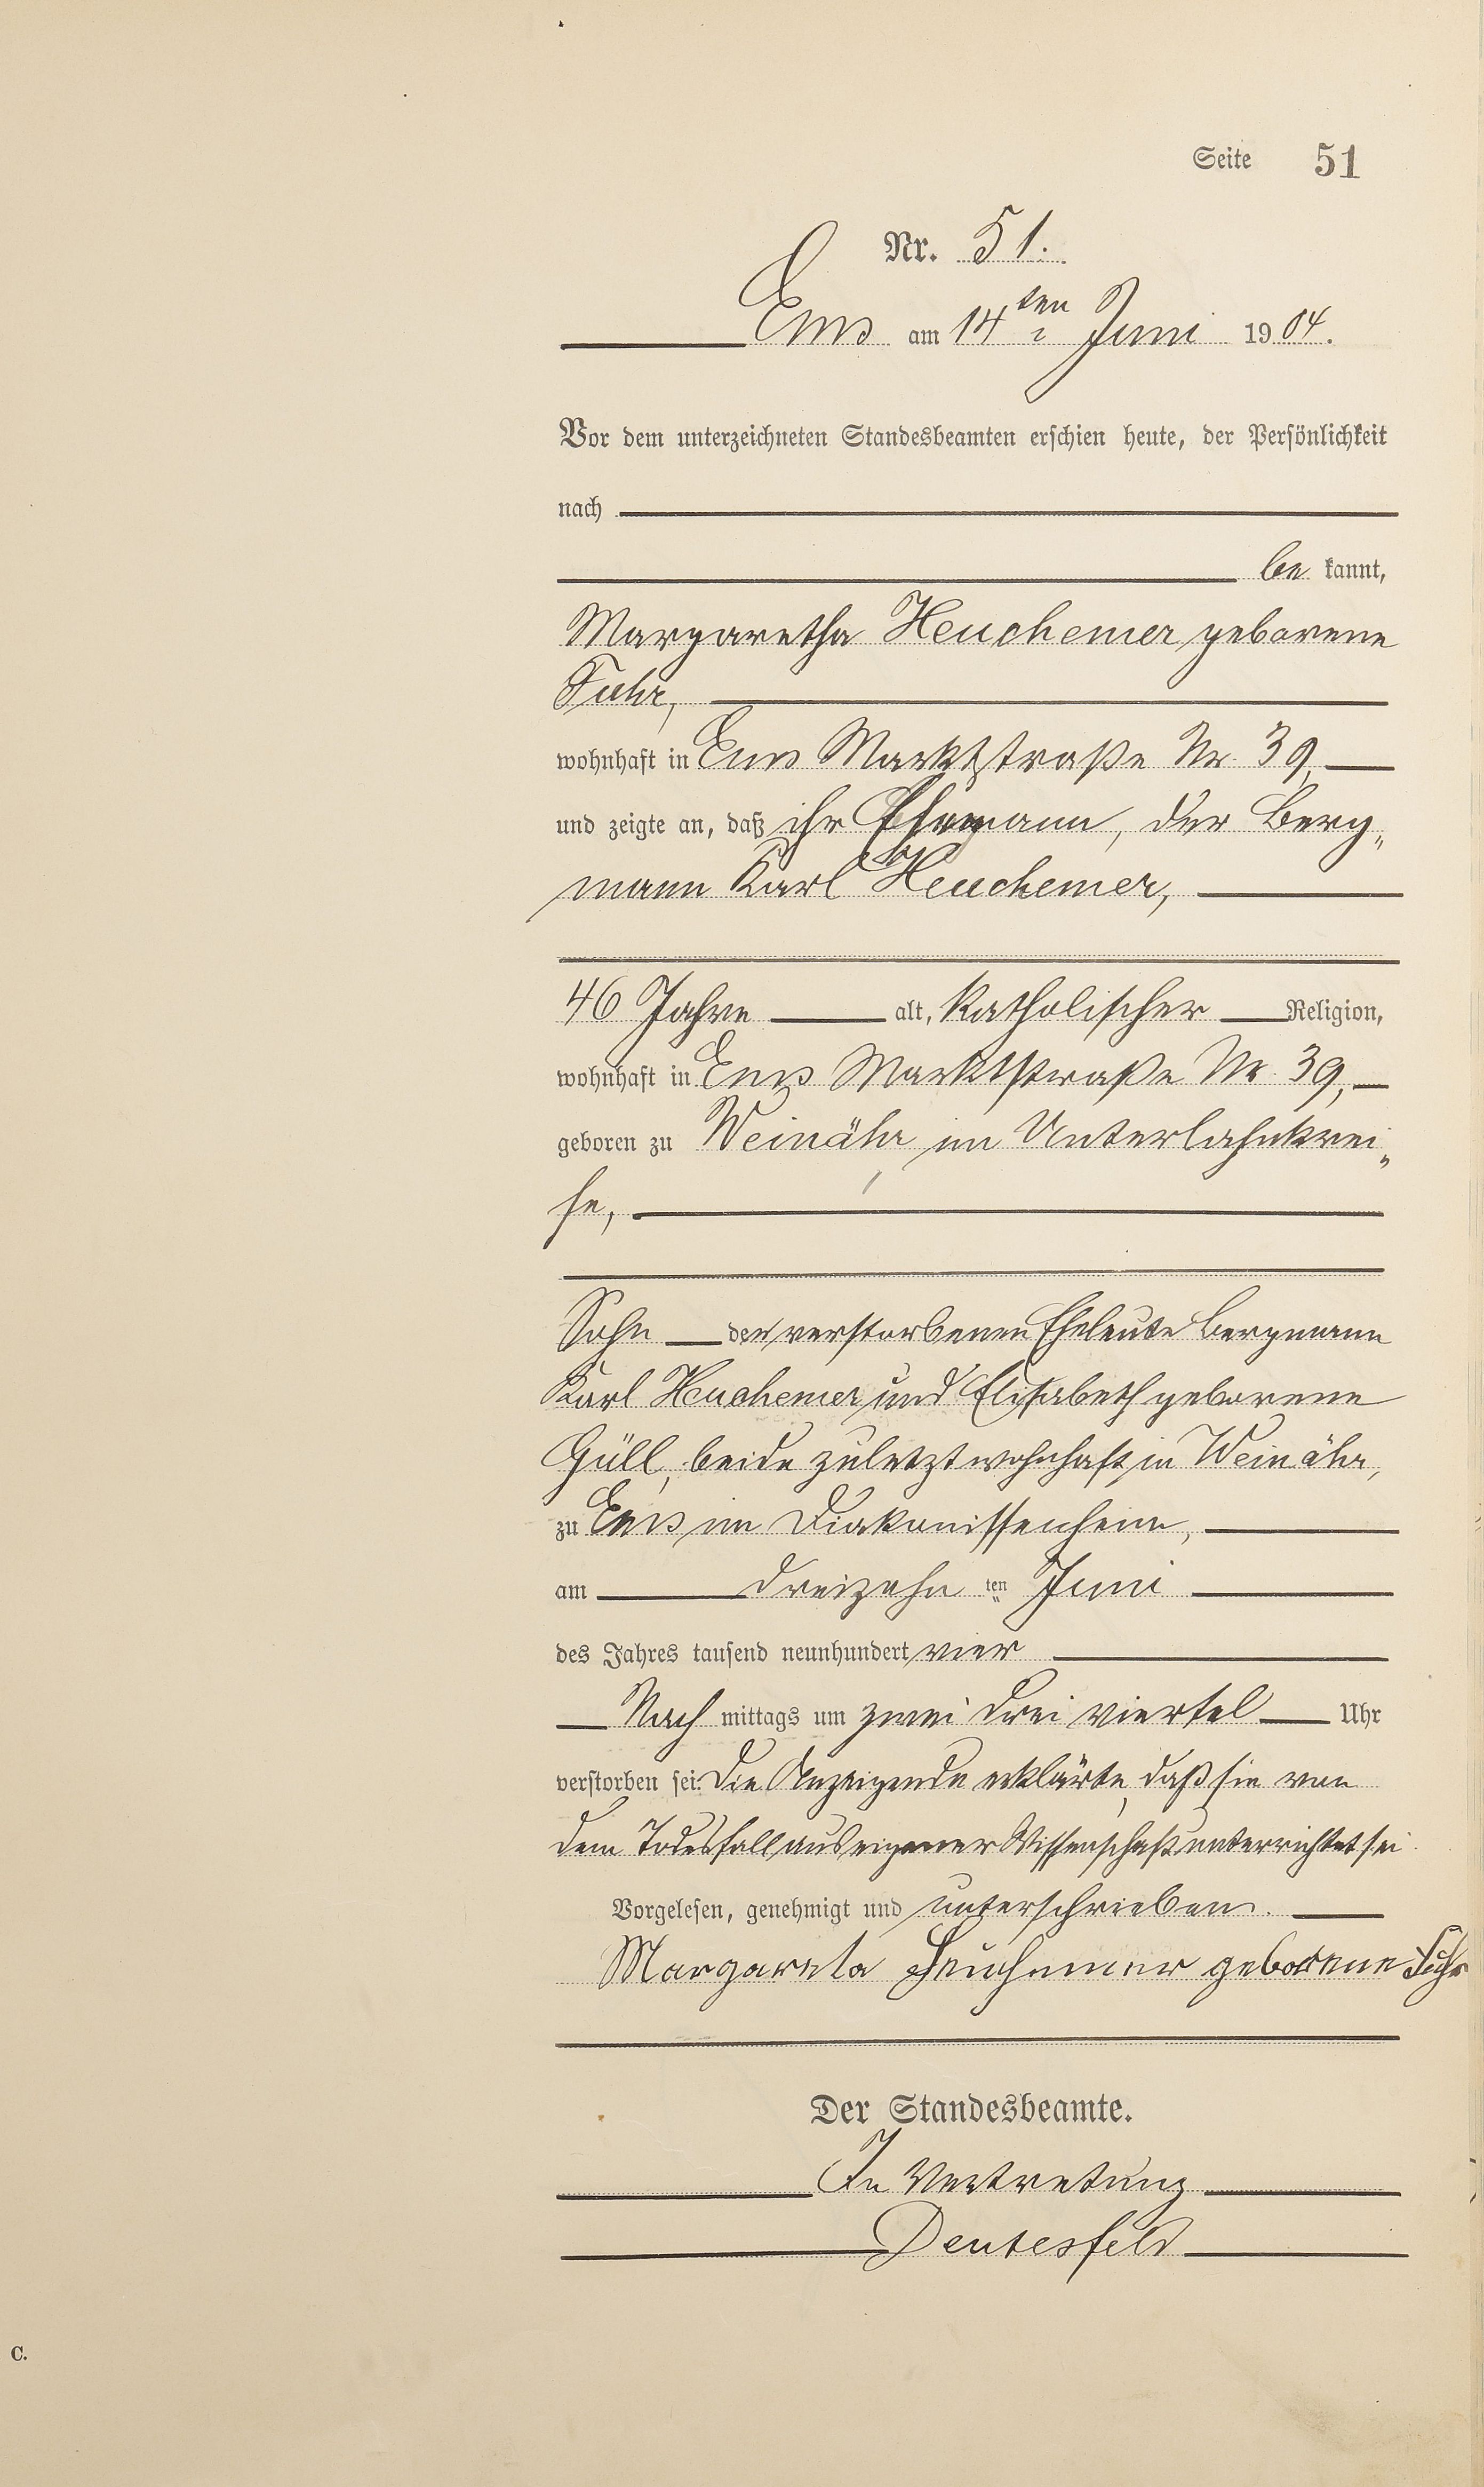 Seite 51
Nr. 51.
Ems am 14ten Juni 1904.
Vor dem unterzeichneten Standesbeamten erschien heute, der Persönlichkeit
nach
be kannt,
Margaretha Heuchemer geborene
Fuhr,
wohnhaft in Ems Marktstraße Nr. 39,
und zeigte an, daß ihr Ehemann, der Berg„
mann Karl Heuchemer,
46 Jahre alt, katholischer Religion,
wohnhaft in Ems Marktstraße Nr. 39,
geboren zu Weinähr im Unterlahnkrei„
se,
Sohn der verstorbenen Eheleute Bergmann
Karl Heuchemer und Elisabeth geborene
Güll, beide zuletzt wohnhaft in Weinähr,
zu Ems im Diakonissenheim,
am dreizehn ten Juni
des Jahres tausend neunhundert vier
Nach mittags um zwei drei viertel Uhr
verstorben sei. Die Anzeigende erklärte, daß sie von
dem Todesfall aus eigener Wissenschaft unterrichtet sei.
Vorgelesen, genehmigt und unterschrieben.
Margareta Heuchemer geborene Fuhr
Der Standesbeamte.
In Vertretung
Deutesfeld
C.